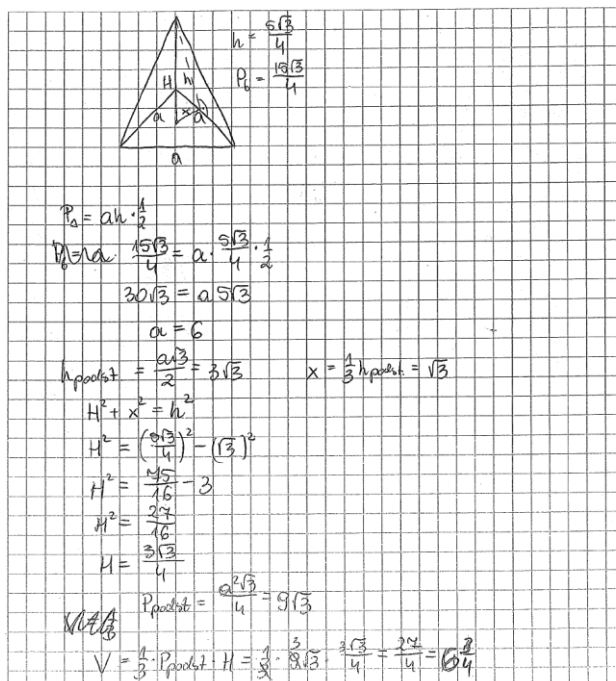 h = 5√3/4
P_b = 15√3/4
H
h
a
x
a
a
P_Δ = ah · 1/2
15√3/4 = a · 5√3/4 · 1/2
30√3 = a 5√3
a = 6
h_podst = a√3/2 = 3√3    x = 1/3 h_podst = √3
H² + x² = h²
H² = (5√3/4)² - (√3)²
H² = 75/16 - 3
H² = 27/16
H = 3√3/4
P_podst = a²√3/4 = 9√3
V = 1/3 · P_podst · H = 1/3 · 9√3 · 3√3/4 = 27/4 = 6 3/4